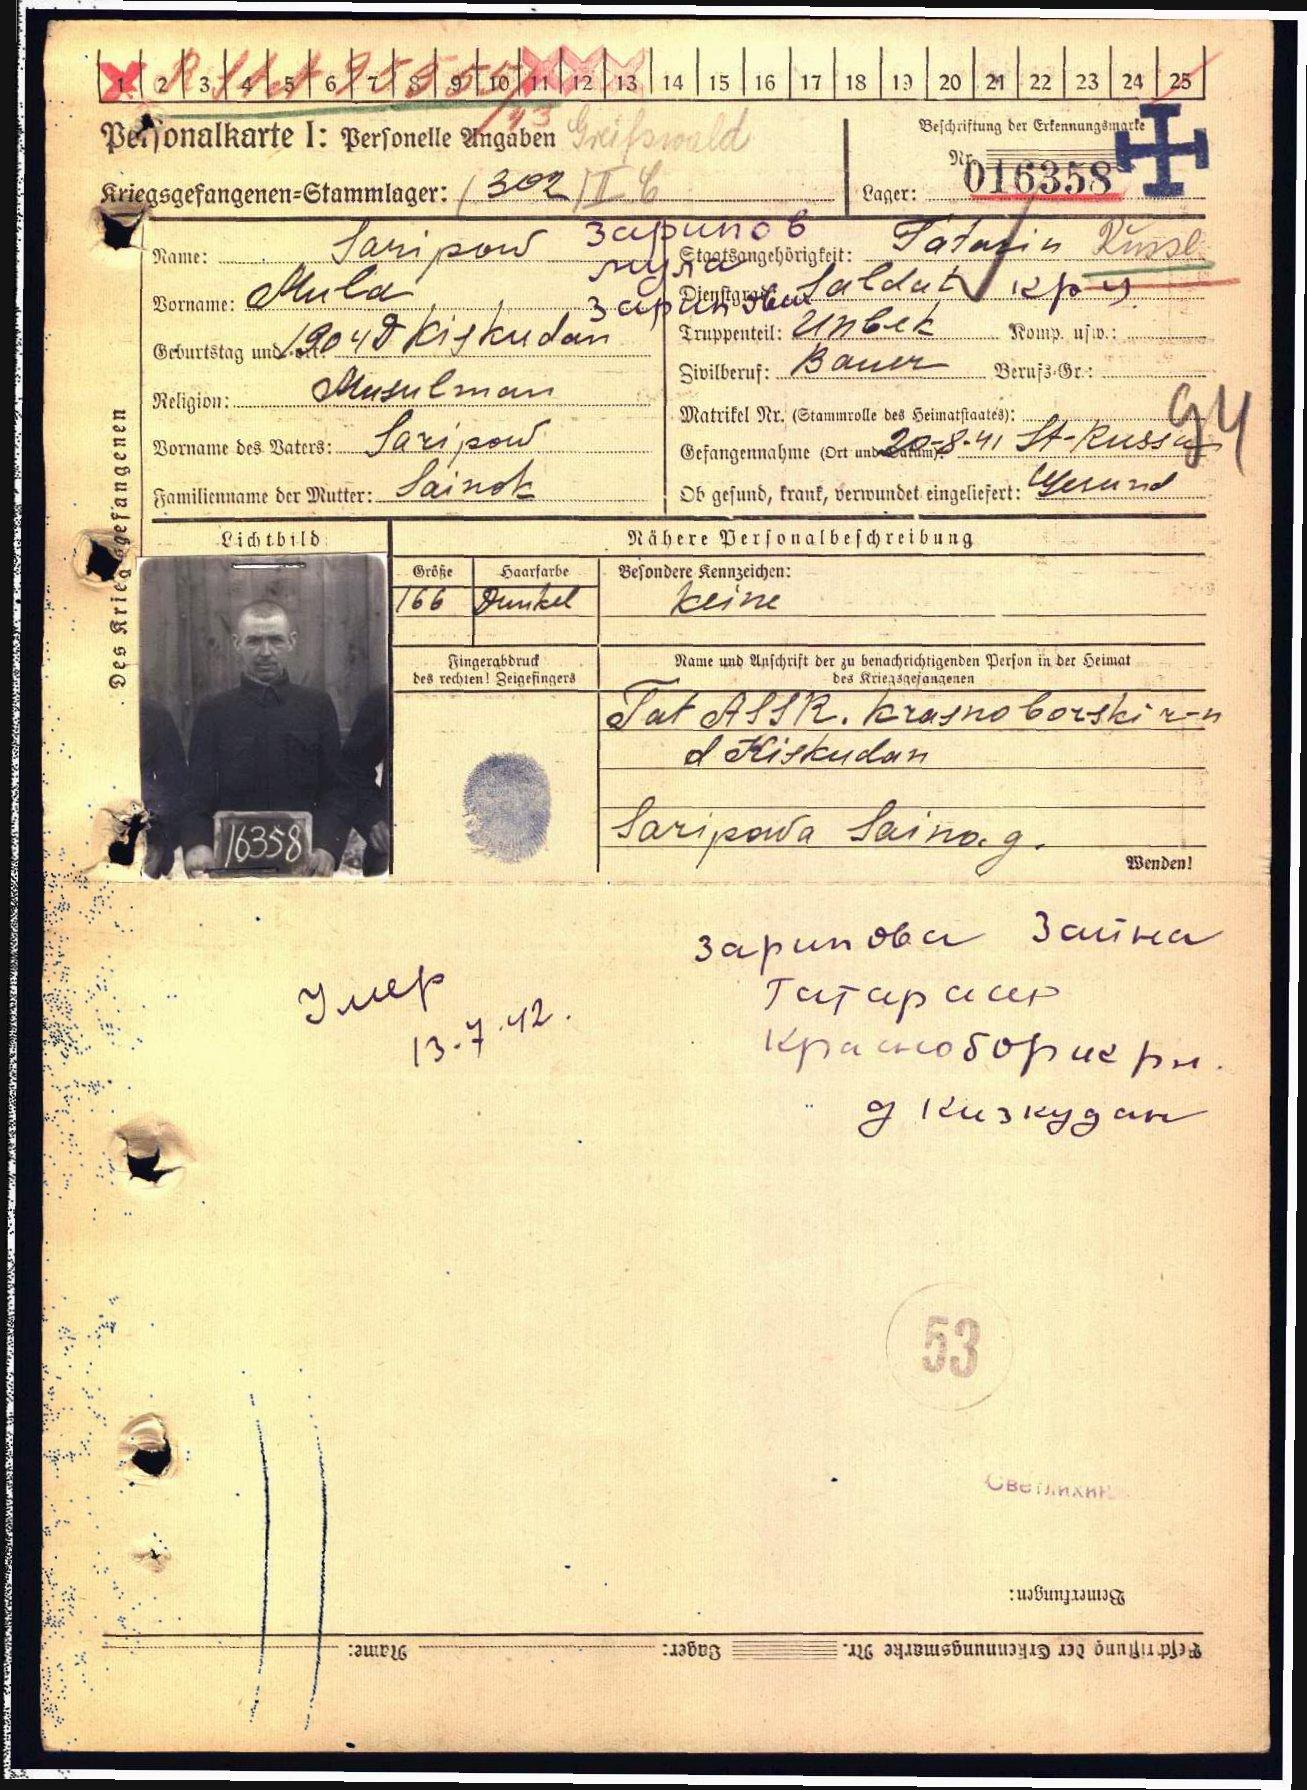 1 2 3 4 5 6 7 8 9 10 11 12 13 14 15 16 17 18 19 20 21 22 23 24 25
Personalkarte I: Personelle Angaben Greifswald
Beschriftung der Erkennungsmarke
Nr. 016358
Kriegsgefangenen-Stammlager: 302 / II C
Lager:
Des Kriegsgefangenen
Name: Saripow Зарипов
Staatsangehörigkeit: Tatarin Russe
Vorname: Mula мула
Dienstgrad: Saldat кр ц
Зарипова
Geburtstag und -ort: 1904 D Kiskudan
Truppenteil: Unbek Komp. usw.:
Zivilberuf: Bauer Berufs-Gr.:
Religion: Musulman
Matrikel Nr. (Stammrolle des Heimatstaates):
94
Vorname des Vaters: Saripow
Gefangennahme (Ort und Datum): 20-8-41 St-Russa
Familienname der Mutter: Sainok
Ob gesund, krank, verwundet eingeliefert: Gesund
Lichtbild
Nähere Personalbeschreibung
Größe Haarfarbe Besondere Kennzeichen:
166 Dunkel keine
Fingerabdruck
des rechten! Zeigefingers
Name und Anschrift der zu benachrichtigenden Person in der Heimat
des Kriegsgefangenen
Tat ASSR. Krasnoborski r-n
d Kiskudan
Saripowa Saina. g.
16358
Wenden!
Зарипова Зайна
Татараср
Красноборик рн.
д Кизкудан
Умер
13.7.42.
53
Светлихин
Bemerkungen:
Beschriftung der Erkennungsmarke Nr. Lager: Name: